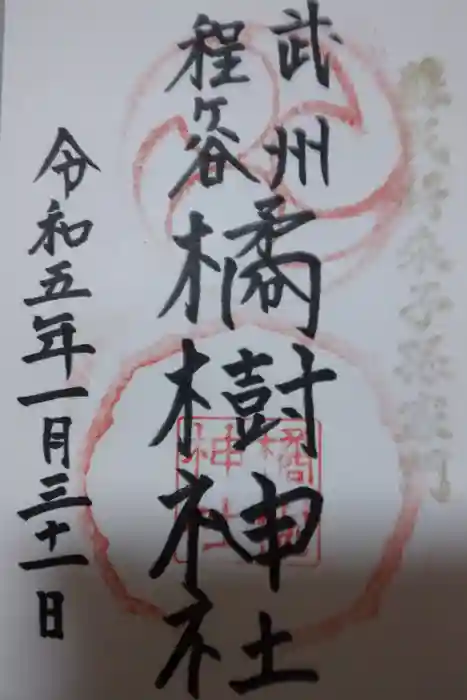 武州
程ケ谷
橘樹神社
橘樹
神社
令和五年一月三十一日